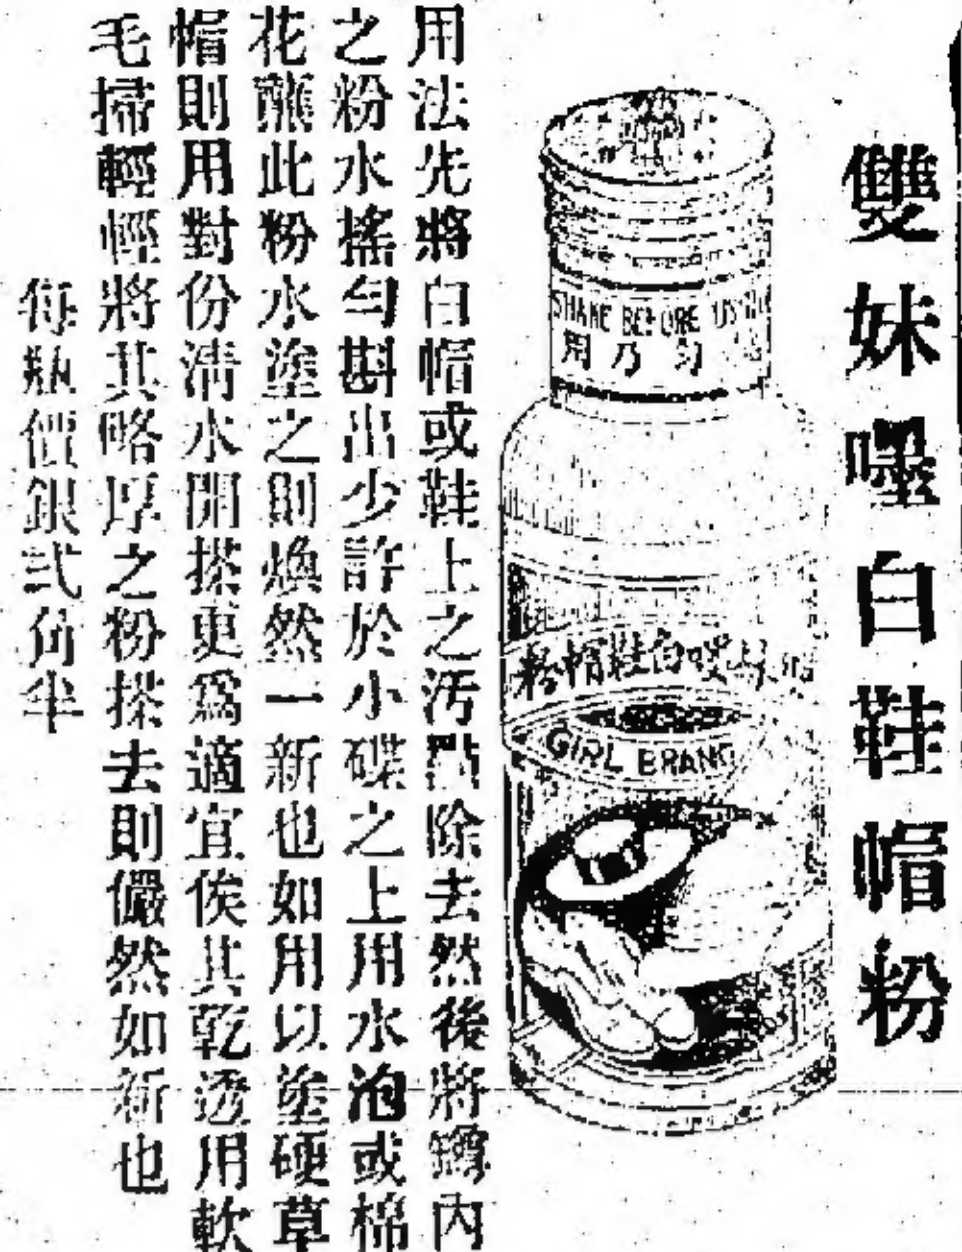 雙妹嚜白鞋帽粉
SHAKE BEFORE USING
匀乃用
白鞋帽粉
GIRL BRAND
用法先將白帽或鞋上之污點除去然後將罇內
之粉水搖勻斟出少許於小碟之上用水泡或棉
花蘸此粉水塗之則煥然一新也如用以塗硬草
帽則用對份清水開搽更爲適宜俟其乾透用軟
毛掃輕輕將其略厚之粉搽去則儼然如新也
每瓶價銀弍角半